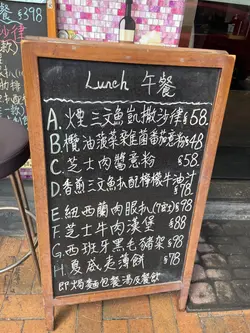 餐 $398
Lunch 午餐
A. 煙三文魚凱撒沙律 $58.
B. 欖油菠菜雜菌番茄意粉 $48
C. 芝士肉醬意粉 $58
D. 香煎三文魚扒配檸檬牛油汁 $78.
E. 紐西蘭肉眼扒(7安) $98
F. 芝士牛肉漢堡 $88
G. 西班牙黑毛豬架 $98
H. 夏威夷薄餅 $78
即焗麵包餐湯及餐飲